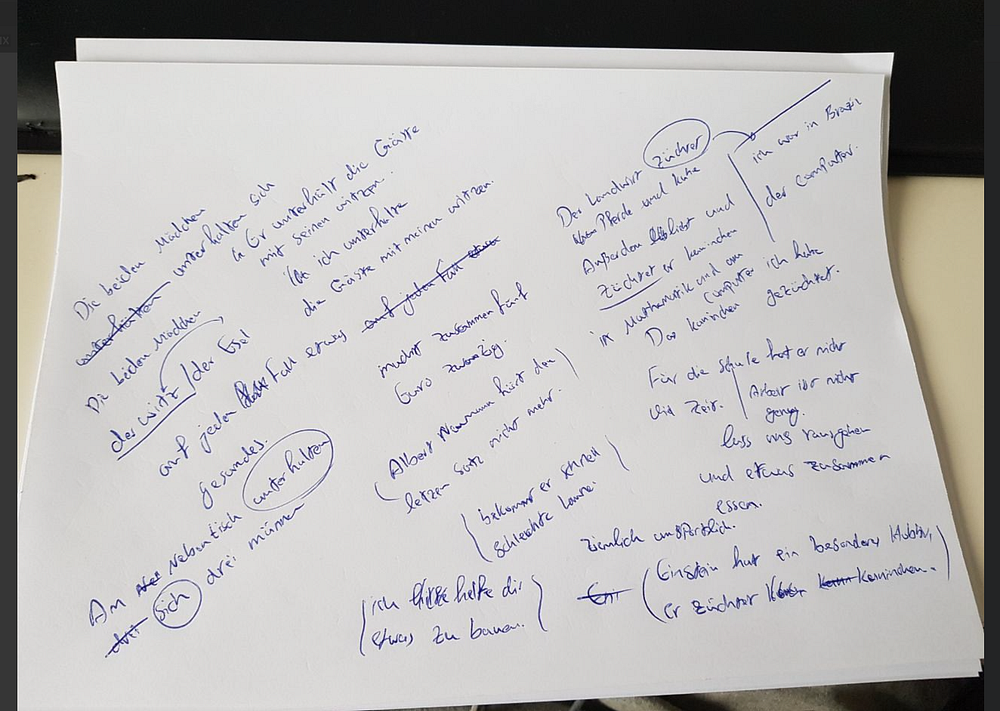 Die beiden Mädchen
unterhalten sich
↳ Er unterhält die Gäste
mit seinen witzen.
ich unterhalte
die Gäste mit meinen witzen.
Die beiden Mädchen
der witz / der Esel
auf jeden Fall etwas
gesundes.
unterhalten
Am Nebentisch
sich drei männer
macht zusammen fünf
Euro zwanzig.
(Albert Naumann hört den
letzen satz nicht mehr.)
(bekommt er schnell
schlechte Laune.)
(ich helfe dir
etwas zu bauen.)
Der Landwirt züchtet
Pferde und Kühe
Außerden liest und
züchtet er kaninchen
in Mathematik und am
Computer ich habe
Das kaninchen gezüchtet.
ich war in Brazil
der Computer.
Für die schule hat er nicht
viel Zeit. Arbeit ist nicht
genug.
lass uns rausgehen
und etwas zusammen
essen.
ziemlich unsportlich.
(Einstein hat ein besonders Hobby,
er züchtet Kaninchen.)